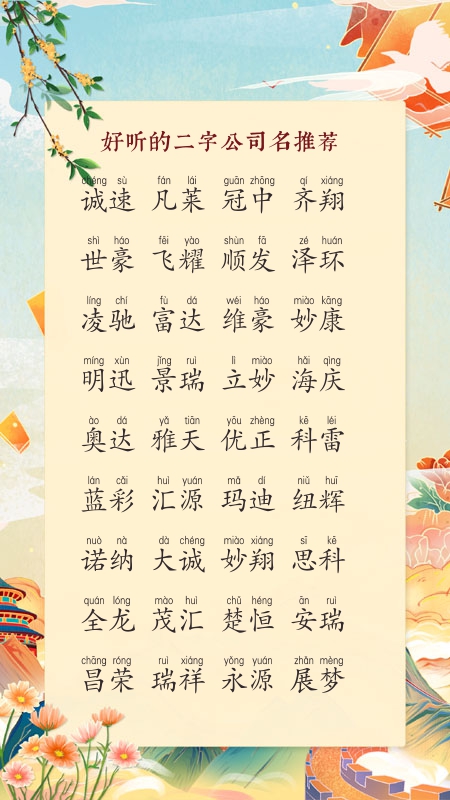 好听的二字公司名推荐
chéng sù fán lái guān zhōng qí xiáng
诚速 凡莱 冠中 齐翔
shì háo fēi yào shùn fā zé huán
世豪 飞耀 顺发 泽环
líng chí fù dá wéi háo miào kāng
凌驰 富达 维豪 妙康
míng xùn jǐng ruì lì miào hǎi qìng
明迅 景瑞 立妙 海庆
ào dá yǎ tiān yōu zhèng kē léi
奥达 雅天 优正 科雷
lán cǎi huì yuán mǎ dí niǔ huī
蓝彩 汇源 玛迪 纽辉
nuò nà dà chéng miào xiáng sī kē
诺纳 大诚 妙翔 思科
quán lóng mào huì chǔ héng ān ruì
全龙 茂汇 楚恒 安瑞
chāng róng ruì xiáng yǒng yuán zhǎn mèng
昌荣 瑞祥 永源 展梦